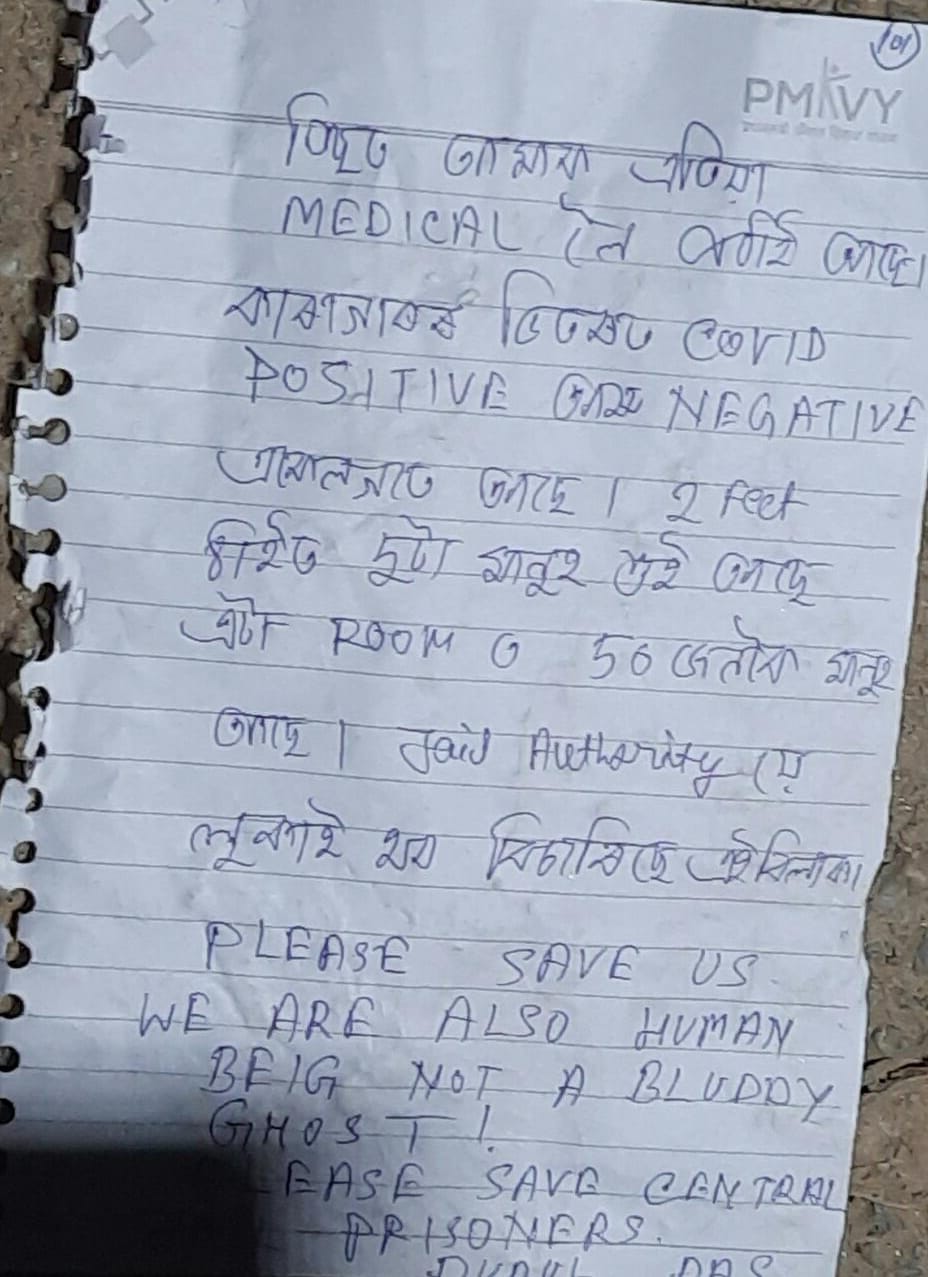 101
PMKVY
আমাৰ এতিয়া
MEDICAL লৈ পঠাই আছে।
কাৰাগাৰৰ ভিতৰত COVID
POSITIVE আৰু NEGATIVE
একেলগতে আছে। 2 feet
ঠাইত দুটা মানুহ শুই আছে
এটা ROOM ত 50 জনকৈ মানুহ
আছে। Jail Authority য়ে
লুকাই থব বিচাৰিছে এইবিলাক।
PLEASE SAVE US.
WE ARE ALSO HUMAN
BEIG NOT A BLUDDY
GHOST!
EASE SAVE CENTRAL
PRISONERS.
DAS